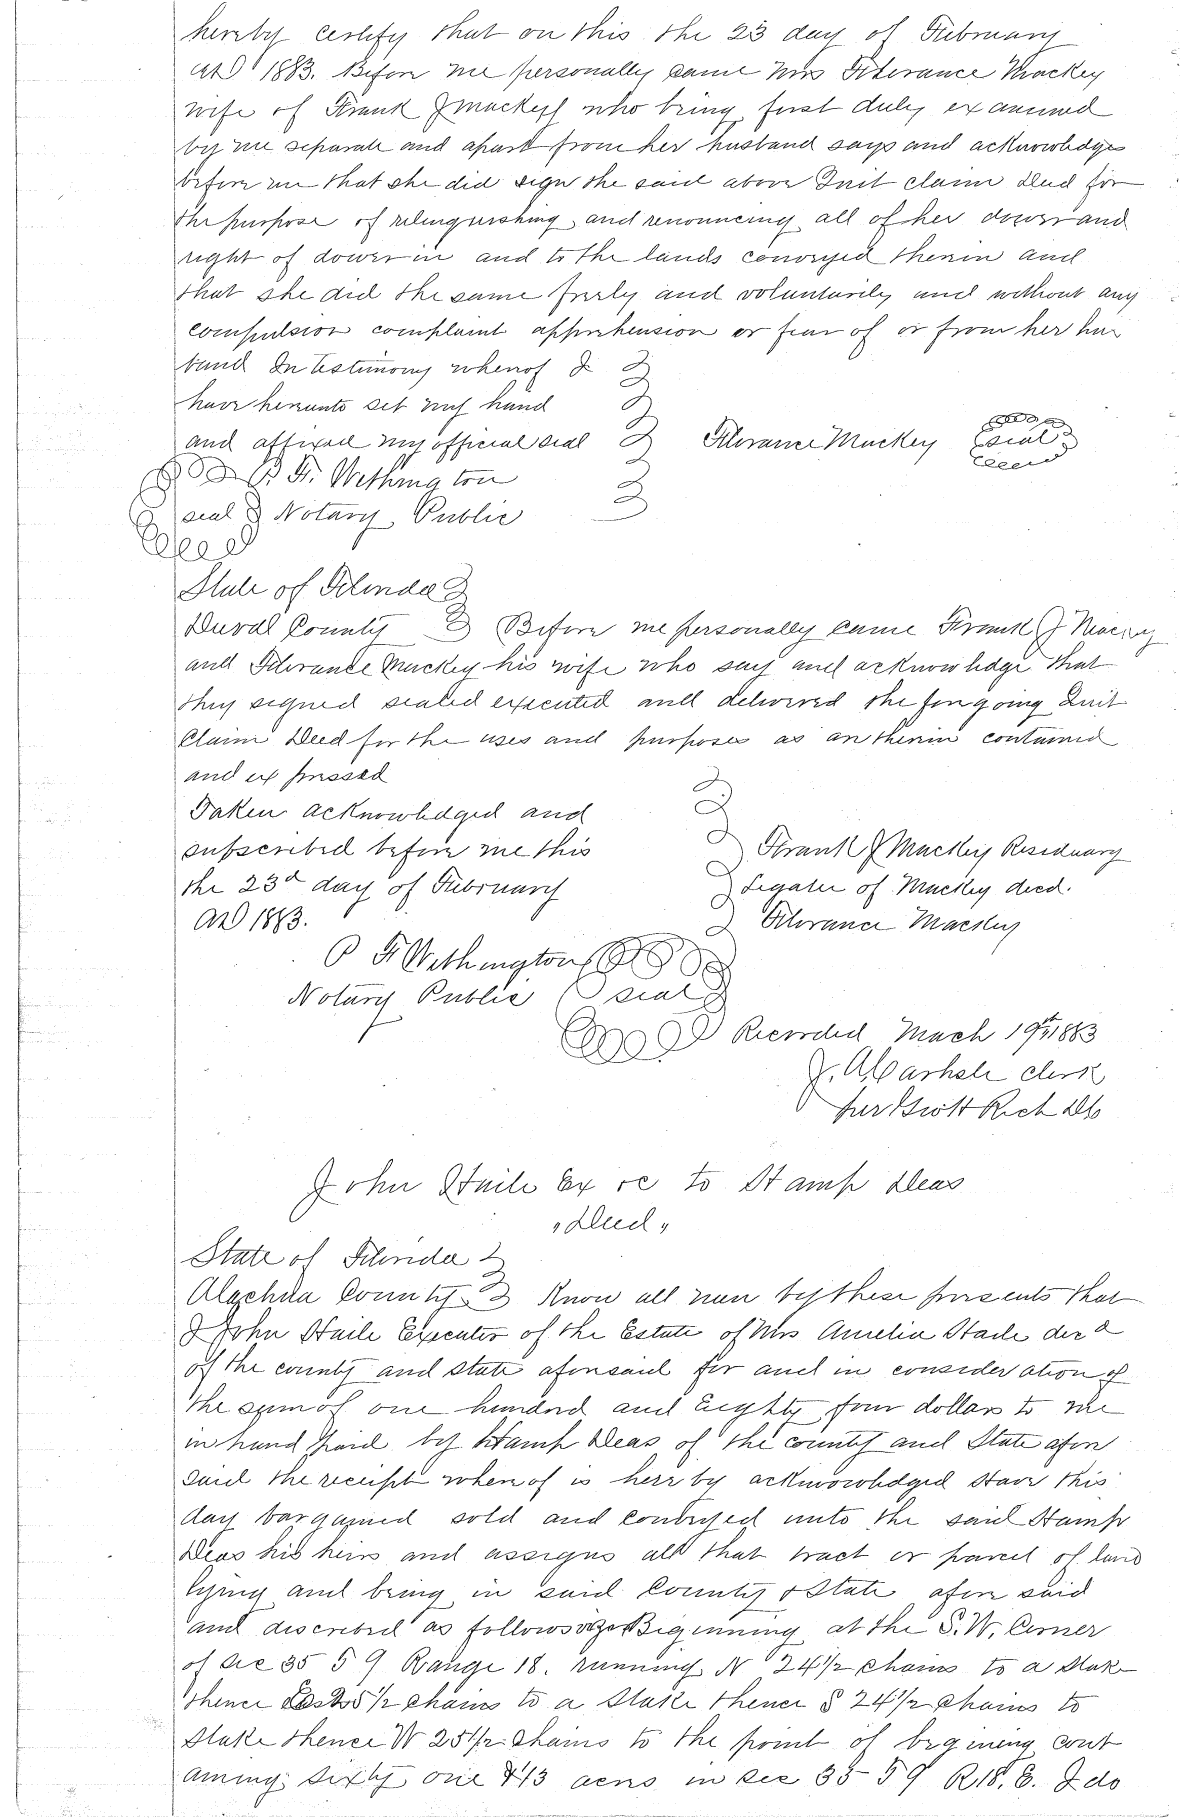 hereby certify that on this the 23 day of February
AD 1883. Before me personally came Mrs Florance Mackey
wife of Frank J Mackey who being first duly examined
by me separate and apart from her husband says and acknowledges
before me that she did sign the said above Quit claim Deed for
the purpose of relinquishing and renouncing all of her dower and
right of dower in and to the lands conveyed therein and
that she did the same freely and voluntarily and without any
compulsion complaint apprehension or fear of or from her hus
band In testimony whereof I
have hereunto set my hand
and affixed my official seal Florance Mackey seal
P. F. Wethington
seal Notary Public
State of Florida
Duval County Before me personally came Frank J Mackey
and Florance Mackey his wife who say and acknowledge that
they signed sealed executed and delivered the foregoing Quit
Claim Deed for the uses and purposes as are therein contained
and expressed
Taken acknowledged and
subscribed before me this
the 23d day of February
AD 1883.
Frank J Mackey Residuary
Legatee of Mackey decd.
Florance Mackey
P F Wethington
Notary Public seal
Recorded March 19th 1883
J. A. Carlisle clerk
per Scott Rich DC
John Haile Ex re to Stamp Deas
"Deed"
State of Florida
Alachua County Know all men by these presents that
I John Haile Executor of the Estate of Mrs Amelia Haile decd
of the county and state aforesaid for and in consideration of
the sum of one hundred and Eighty four dollars to me
in hand paid by Stamp Deas of the county and State afore
said the receipt whereof is herr by acknowledged Have this
day bargained sold and conveyed unto the said Stamp
Deas his heirs and assigns all that tract or parcel of land
lying and being in said County & State afore said
and discribed as follows viz Beginning at the S.W. Corner
of Sec 35 5 9 Range 18. running N 24½ chains to a Stake
thence East 25½ chains to a Stake thence S 24½ chains to
Stake thence W 25½ chains to the point of begining cont
aining sixty one & 1/3 acres in sec 35 5 9 R18. E. I do